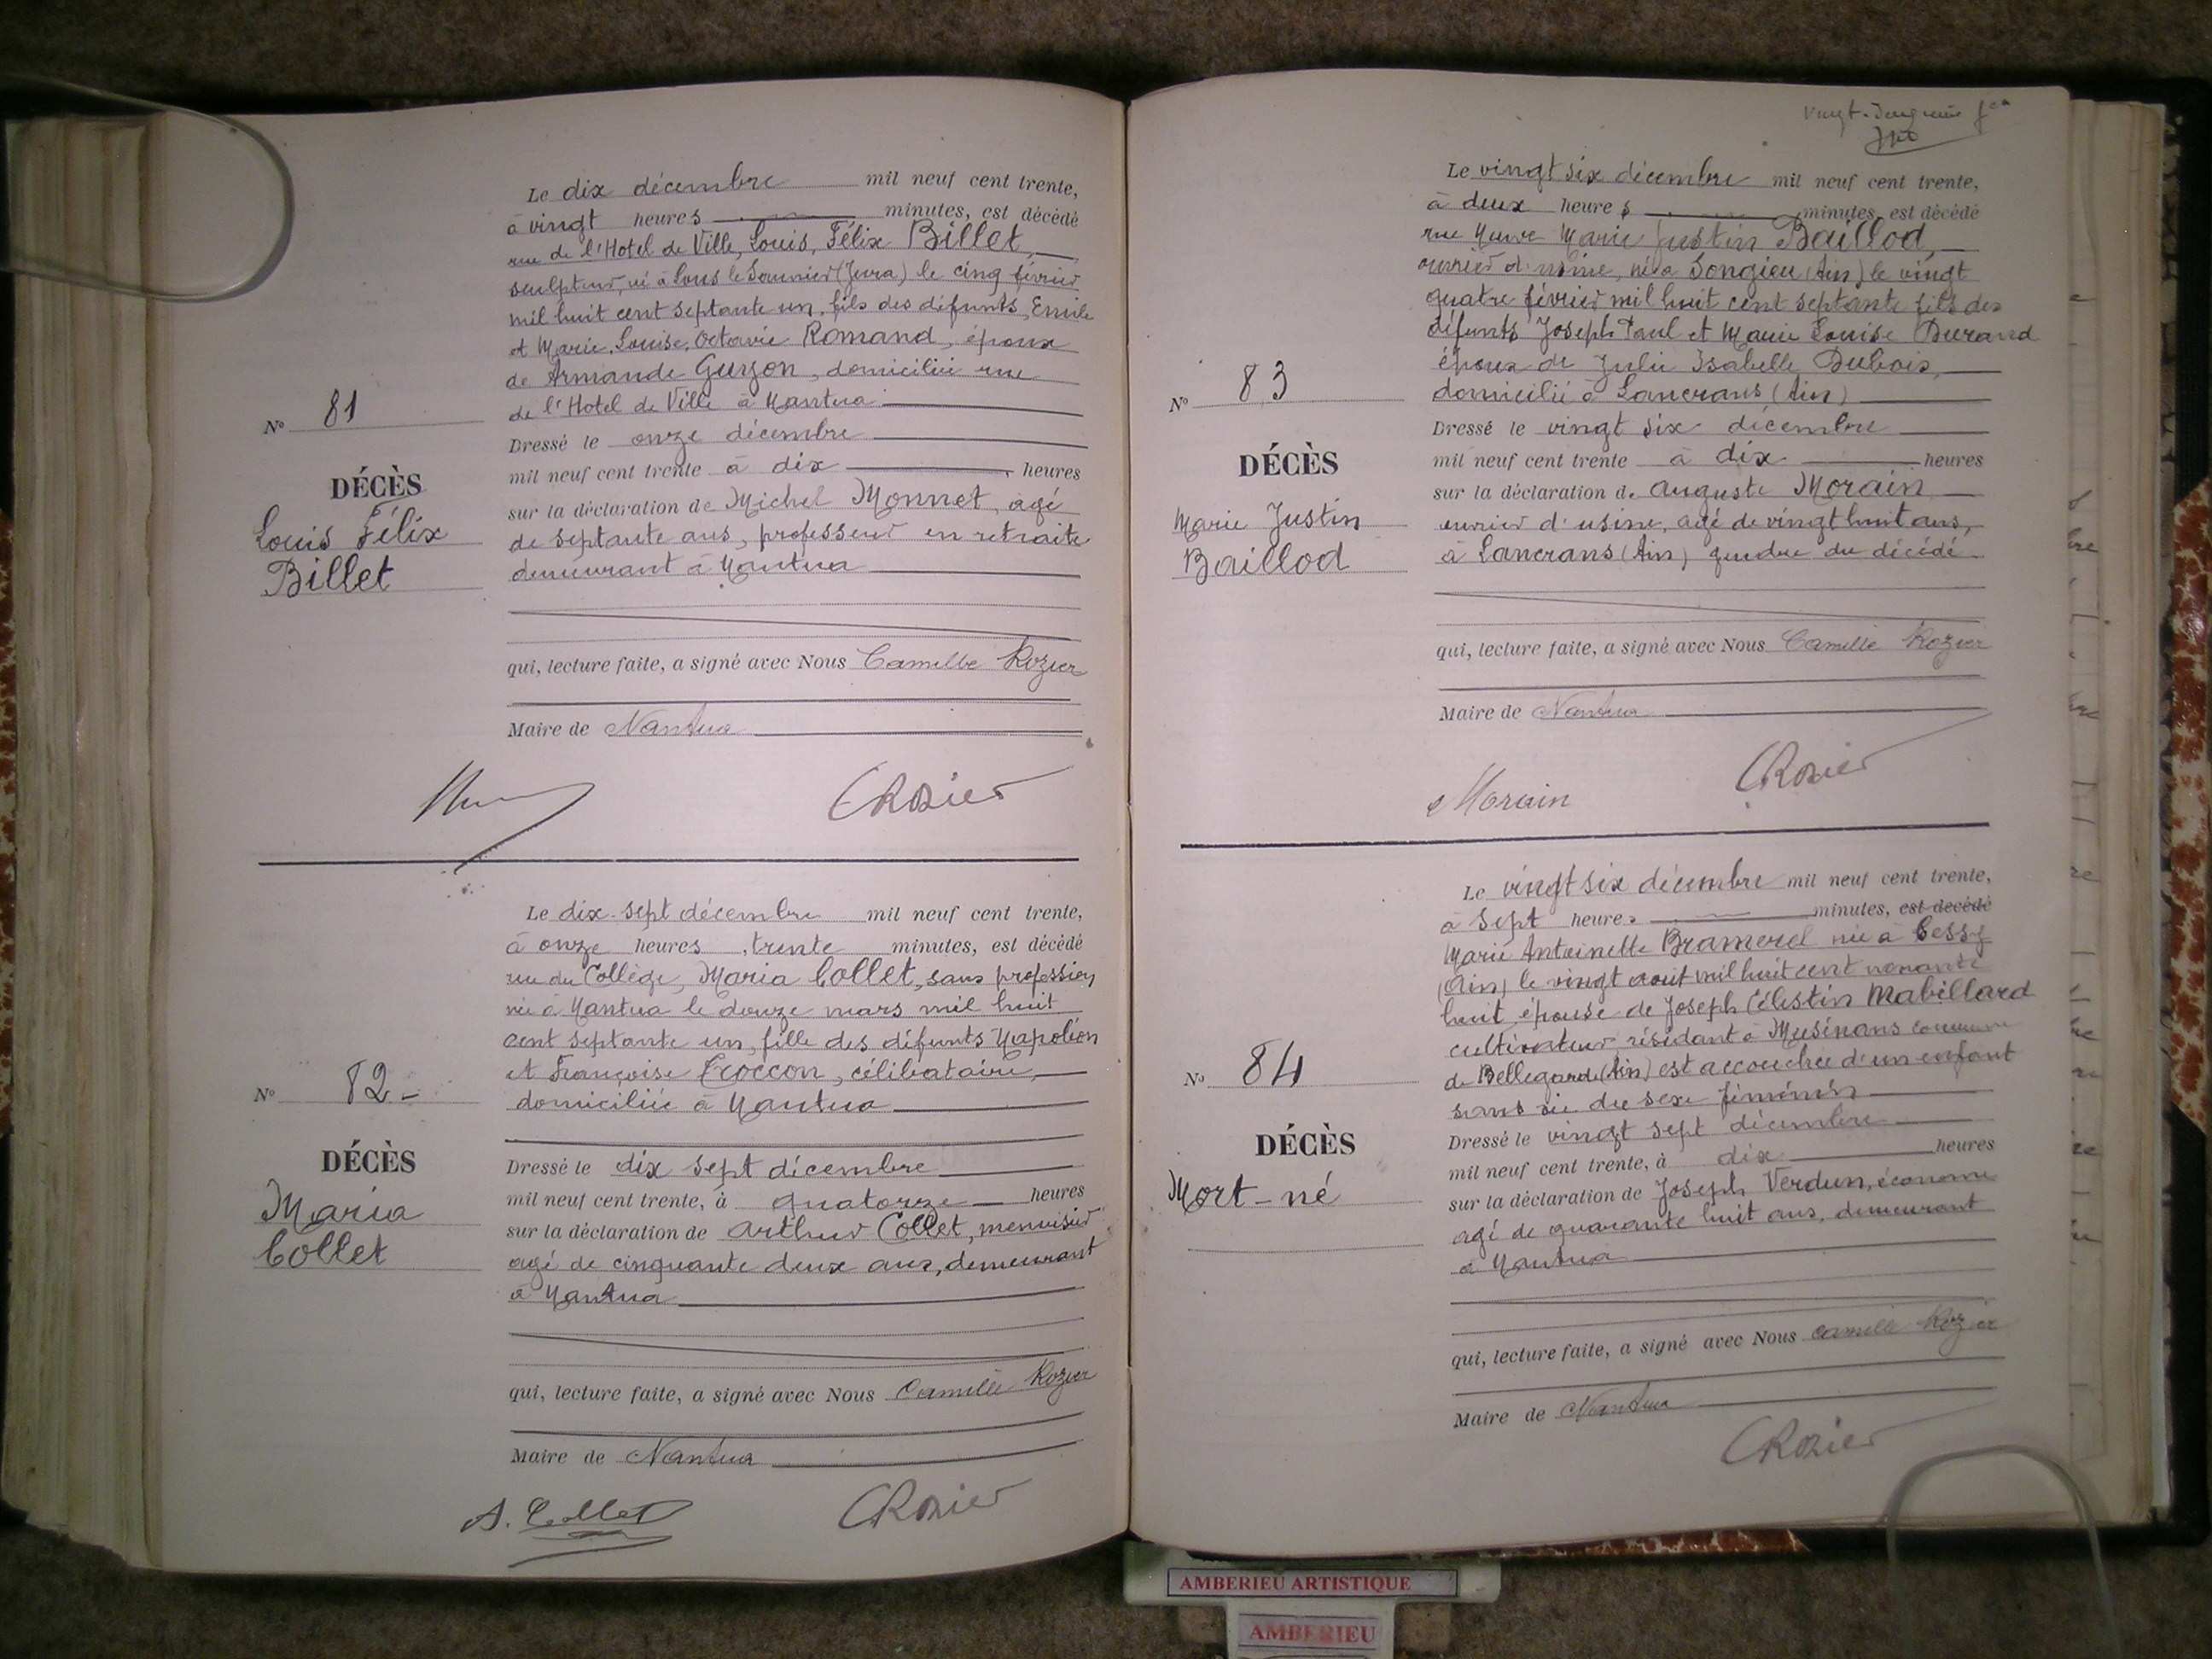 Le dix décembre mil neuf cent trente,
à vingt heures minutes, est décédé
rue de l'Hotel de Ville, Louis, Félix Billet,
sculpteur, né à Lons le Saunier (Jura) le cinq février
mil huit cent septante un, fils des défunts, Emile
et Marie, Louise, Octavie Romand, époux
de Armande Guyon, domicilié rue
de l'Hotel de Ville à Nantua
Nº 81
DÉCÈS
Louis Félix
Billet
Dressé le onze décembre
mil neuf cent trente à dix heures
sur la déclaration de Michel Monnet, agé
de septante ans, professeur en retraite
demeurant à Nantua
qui, lecture faite, a signé avec Nous Camille Rozier
Maire de Nantua
CRozier
Le dix-sept décembre mil neuf cent trente,
à onze heures, trente minutes, est décédé
rue du Collège, Maria Collet, sans profession
née à Nantua le douze mars mil huit
cent septante un, fille des défunts Napoléon
et Françoise Croccon, célibataire,
domiciliée à Nantua
Nº 82-
DÉCÈS
Maria
Collet
Dressé le dix sept décembre
mil neuf cent trente, à quatorze heures
sur la déclaration de Arthur Collet, menuisier
agé de cinquante deux ans, demeurant
à Nantua
qui, lecture faite, a signé avec Nous Camille Rozier
Maire de Nantua
A. Collet CRozier
Le vingt six décembre mil neuf cent trente,
à deux heures minutes, est décédé
rue Marie Justin Baillod,
ouvrier d'usine, né à Songieu (Ain) le vingt
quatre février mil huit cent septante fils des
défunts Joseph Paul et Marie Louise Durand
époux de Julie Isabelle Dubois,
domicilié à Lancrans (Ain)
Nº 83
DÉCÈS
Marie Justin
Baillod
Dressé le vingt six décembre
mil neuf cent trente à dix heures
sur la déclaration de Auguste Morain
ouvrier d'usine, agé de vingt huit ans,
à Lancrans (Ain) gendre du décédé
qui, lecture faite, a signé avec Nous Camille Rozier
Maire de Nantua
Morain CRozier
Le vingt six décembre mil neuf cent trente,
à sept heures minutes, est décédé
Marie Antoinette Bramerel née à Cessy
(Ain) le vingt aout mil huit cent nonante
huit, épouse de Joseph Célestin Mabillard
cultivateur résidant à Musinans commune
de Bellegarde (Ain) est accouchée d'un enfant
sans vie du sexe féminin
Nº 84
DÉCÈS
Mort-né
Dressé le vingt sept décembre
mil neuf cent trente, à dix heures
sur la déclaration de Joseph Verdun, économe
agé de quarante huit ans, demeurant
à Nantua
qui, lecture faite, a signé avec Nous Camille Rozier
Maire de Nantua
CRozier
AMBERIEU ARTISTIQUE
AMBERIEU